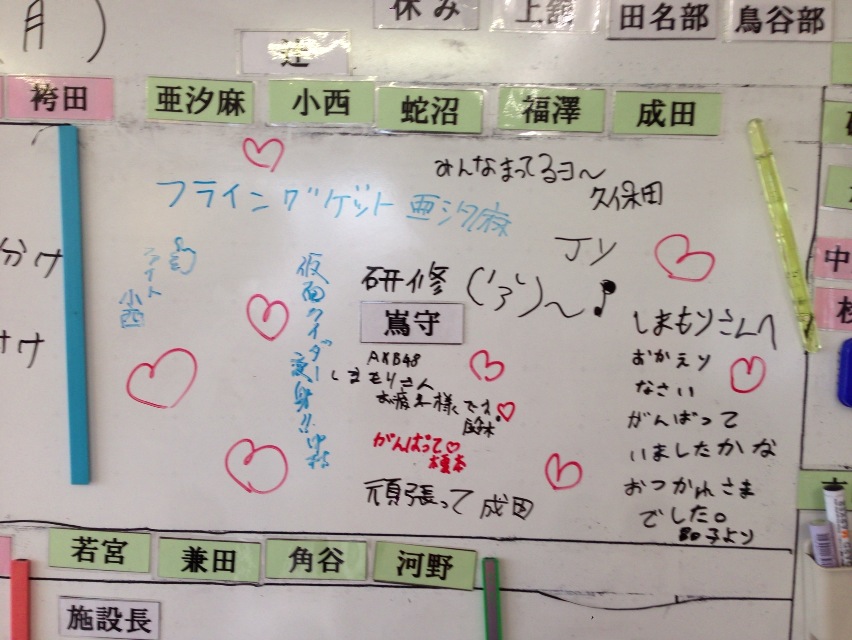 月)
休み
上舘
田名部
鳥谷部
辻
袴田
亜汐麻
小西
蛇沼
福澤
成田
みんなまってるヨ〜
久保田
フライングゲット 亜汐麻
ファイト
小西
仮面ライダー
変身!!
研修 ( ’з’)〜♪
嶌守
AKB48
しまもりさん
お疲れ様です♡
がんばって♡
榎本
頑張って 成田
しまもりさんへ
おかえり
なさい
がんばって
いましたかな
おつかれさま
でした。
子より
分け
け
中
若宮
兼田
角谷
河野
施設長